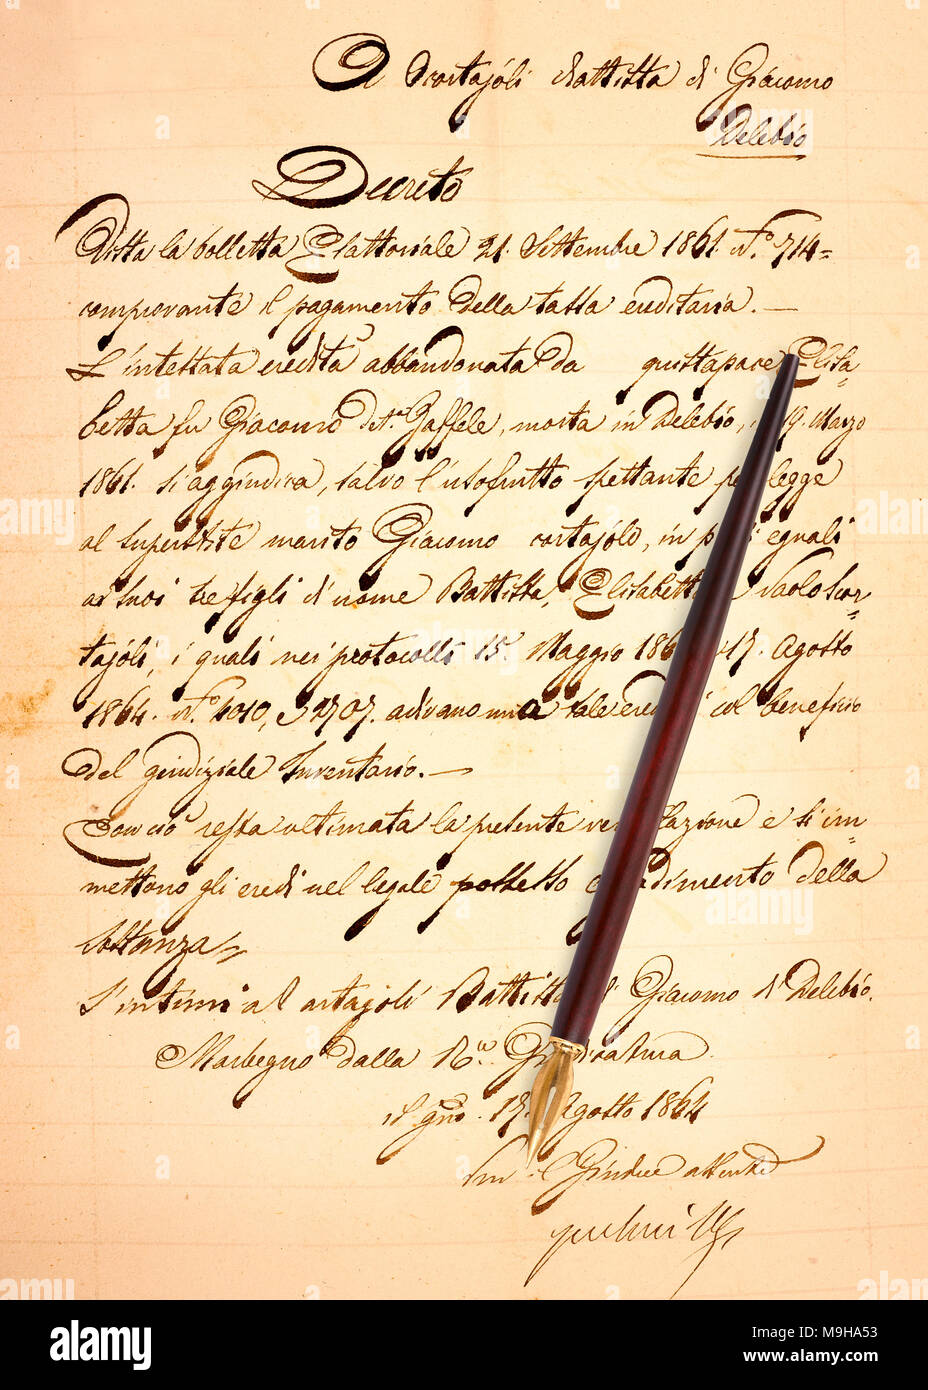 A Scartajoli Battista di Giacomo
Delebio
Decreto
Vista la bolletta Esattoriale 21. Settembre 1861. N.° 714=
comprovante il pagamento della tassa ereditaria. —
L'intestata eredità abbandonata da Elisa-
betta fu Giacomo Gaffele, morta in Delebio, 19. Marzo
1861. si aggiudica, salvo l'usofrutto spettante legge
al superstite marito Giacomo cartajolo, in eguali
ai suoi tre figli di nome Battista, Paolo Scar-
tajoli, i quali nei protocolli 15. Maggio 17. Agosto
1864. N.° 4010, e 2707. adivano una tale col beneficio
del giudiziale Inventario. —
Con ciò resta ultimata la presente e si im-
mettono gli eredi nel legale possesso della
sostanza=
S'intimi al artajoli Battista di Giacomo di Delebio.
Morbegno dalla R.a
il gno. 17. Agosto 1864
il Giudice assente
alamy
Image ID: M9HA53
www.alamy.com